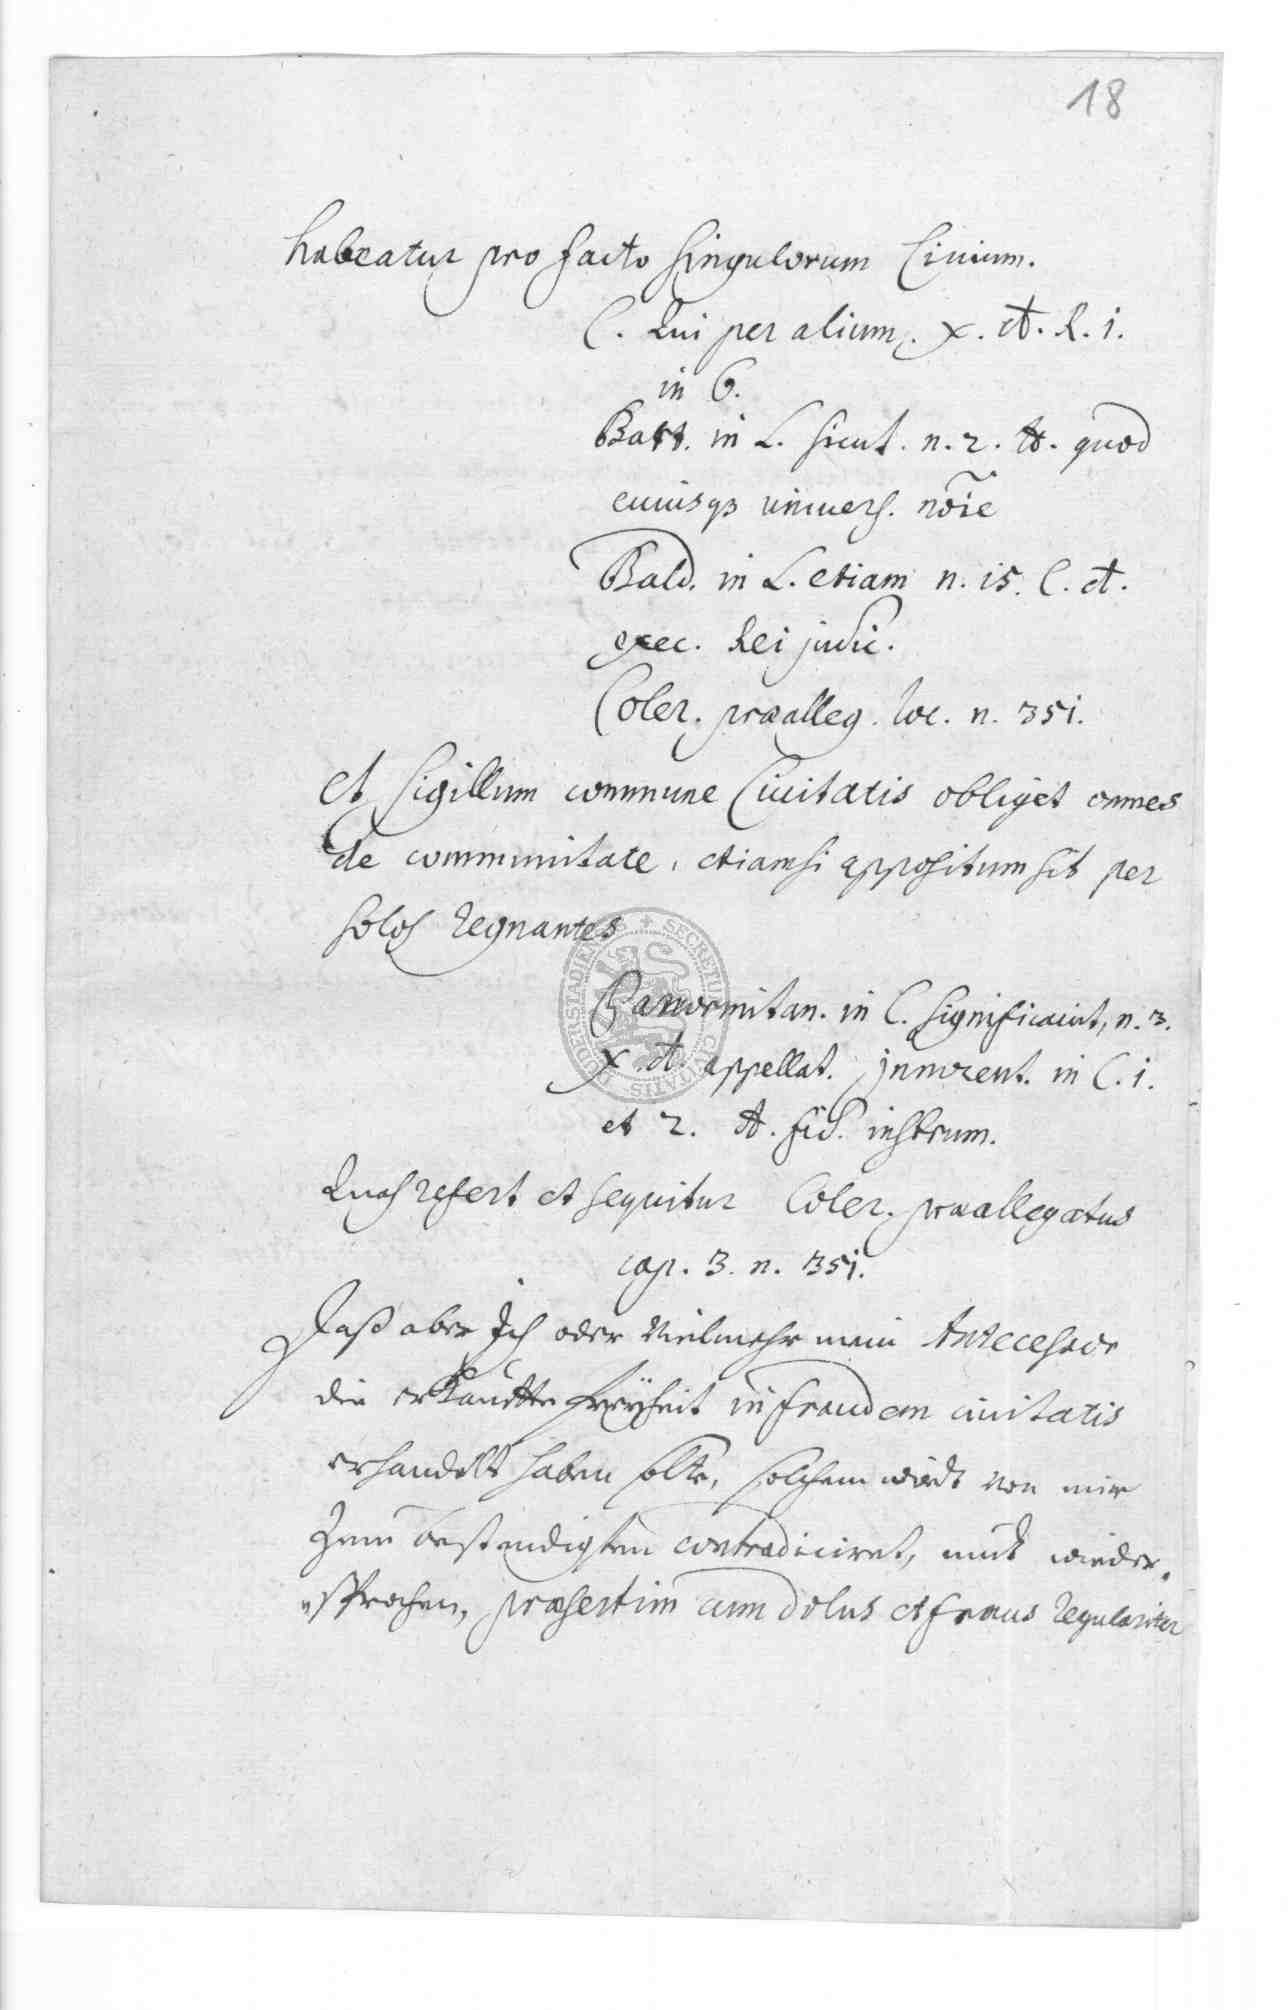 18
habeatur pro facto singulorum Civium.
C. Qui per alium. x. de. R. i.
in 6.
Bart. in L. sicut. n. 2. ff. quod
cuiusq3 univers. nôie
Bald. in L. etiam n. 15. C. de.
exec. Rei judic.
Coler. praealleg. loc. n. 351.
et Sigillum commune Civitatis obliget omnes
de communitate, etiamsi appositum sit per
solos Regnantes
Panormitan. in C. significavit, n. 3.
x. de. appellat. Innocent. in C. i.
et 2. de. fid. instrum.
Quos refert et sequitur Coler. praeallegatus
cap. 3. n. 351.
Daß aber Ich oder Vielmehr mein Antecessor
die erkauffte Freyheit in fraudem civitatis
erhandelt haben solte, solchem wirdt von mir
Zum bestendigsten contradiciret, undt wieder„
„sprochen, praesertim cum dolus et fraus regulariter
SECRETUM CIVITATIS DUDERSTADIENSIS